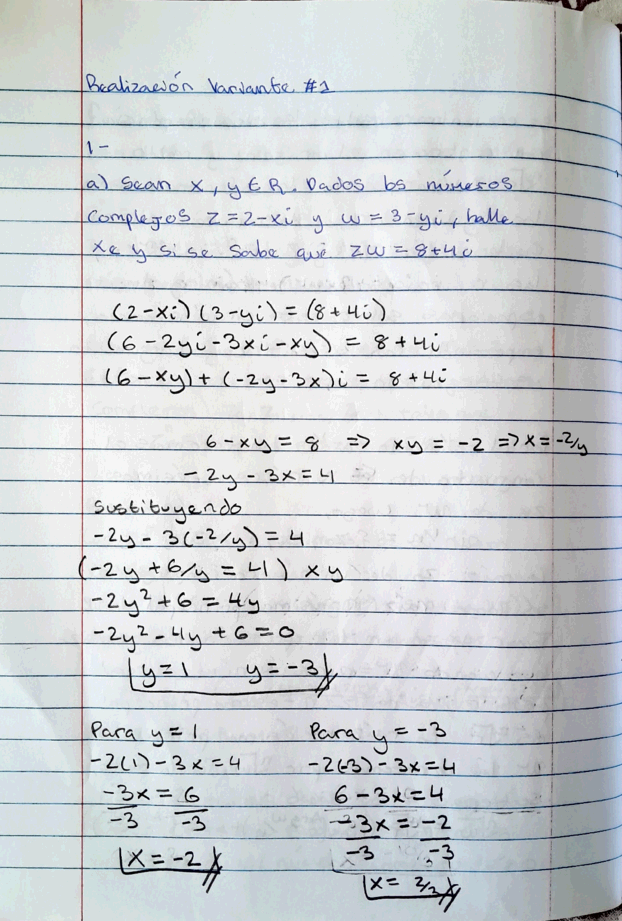 Realización Variante #1
1-
a) Sean x, y ∈ R. Dados los números
Complejos z = 2-xi y w = 3-yi, halle
x e y si se sabe que zw = 8+4i
(2-xi)(3-yi) = (8+4i)
(6-2yi-3xi-xy) = 8+4i
(6-xy)+(-2y-3x)i = 8+4i
6-xy = 8 => xy = -2 => x = -2/y
-2y-3x = 4
Sustituyendo
-2y-3(-2/y) = 4
(-2y+6/y = 4) xy
-2y²+6 = 4y
-2y²-4y+6 = 0
y = 1 y = -3
Para y = 1 Para y = -3
-2(1)-3x = 4 -2(-3)-3x = 4
-3x = 6 6-3x = 4
-3 -3 -3x = -2
x = -2 -3 -3
x = 2/3